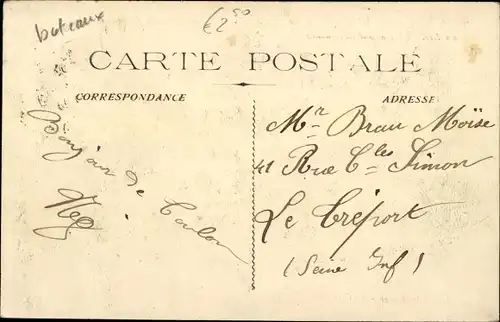 bateaux
€2,50
CARTE POSTALE
CORRESPONDANCE
ADRESSE
Bonjour de Toulon
Mr Brau Moïse
41 Rue Cles Simon
Le Tréport
(Seine Inf)